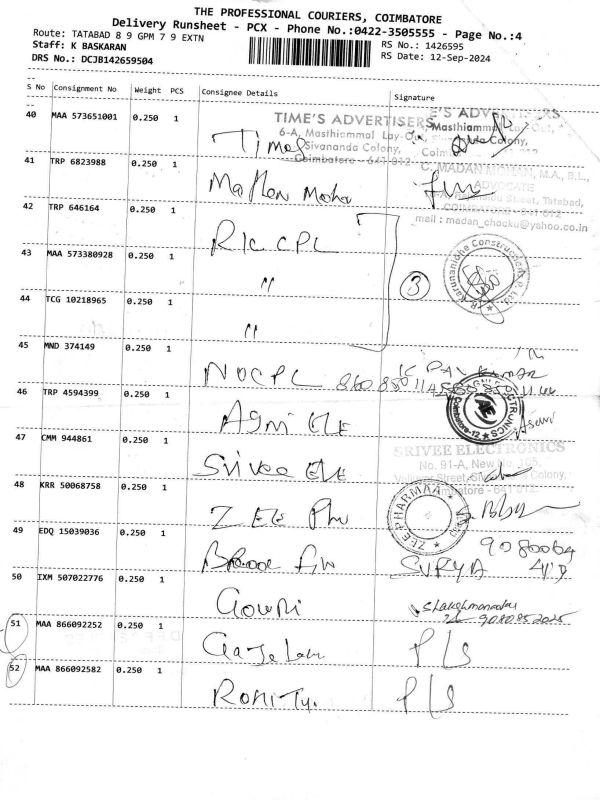 THE PROFESSIONAL COURIERS, COIMBATORE
Delivery Runsheet - PCX - Phone No.:0422-3505555 - Page No.:4
Route: TATABAD 8 9 GPM 7 9 EXTN
RS No.: 1426595
Staff: K BASKARAN
RS Date: 12-Sep-2024
DRS No.: DCJB142659504
S No Consignment No Weight PCS Consignee Details Signature
40 MAA 573651001 0.250 1
TIME'S ADVERTISERS
6-A, Masthiammal Lay-Out,
Sivananda Colony,
Coimbatore - 641 012
E'S ADVERTISERS
Masthiammal Lay-Out,
Colony,
Times
41 TRP 6823988 0.250 1
C. MADAN MOHAN, M.A., B.L.,
ADVOCATE
Street, Tatabad,
COIMBATORE - 641 012
mail : madan_chocku@yahoo.co.in
42 TRP 646164 0.250 1
RKCCPL
43 MAA 573380928 0.250 1
"
3
Karunanidhe Constructions
44 TCG 10218965 0.250 1
"
45 MND 374149 0.250 1
NOCPL
46 TRP 4594399 0.250 1
Agni ELE
Coimbatore-12
AE
47 CMM 944861 0.250 1
Srivee ELE
SRIVEE ELECTRONICS
No. 91-A, New No. 165,
Colony,
Coimbatore - 641 012.
48 KRR 50068758 0.250 1
ZEE Phr
ZEE PHARMAA
49 EDQ 15039036 0.250 1
SURYA
50 IXM 507022776 0.250 1
Gowri
9080852025
51 MAA 866092252 0.250 1
P/S
52 MAA 866092582 0.250 1
P/S